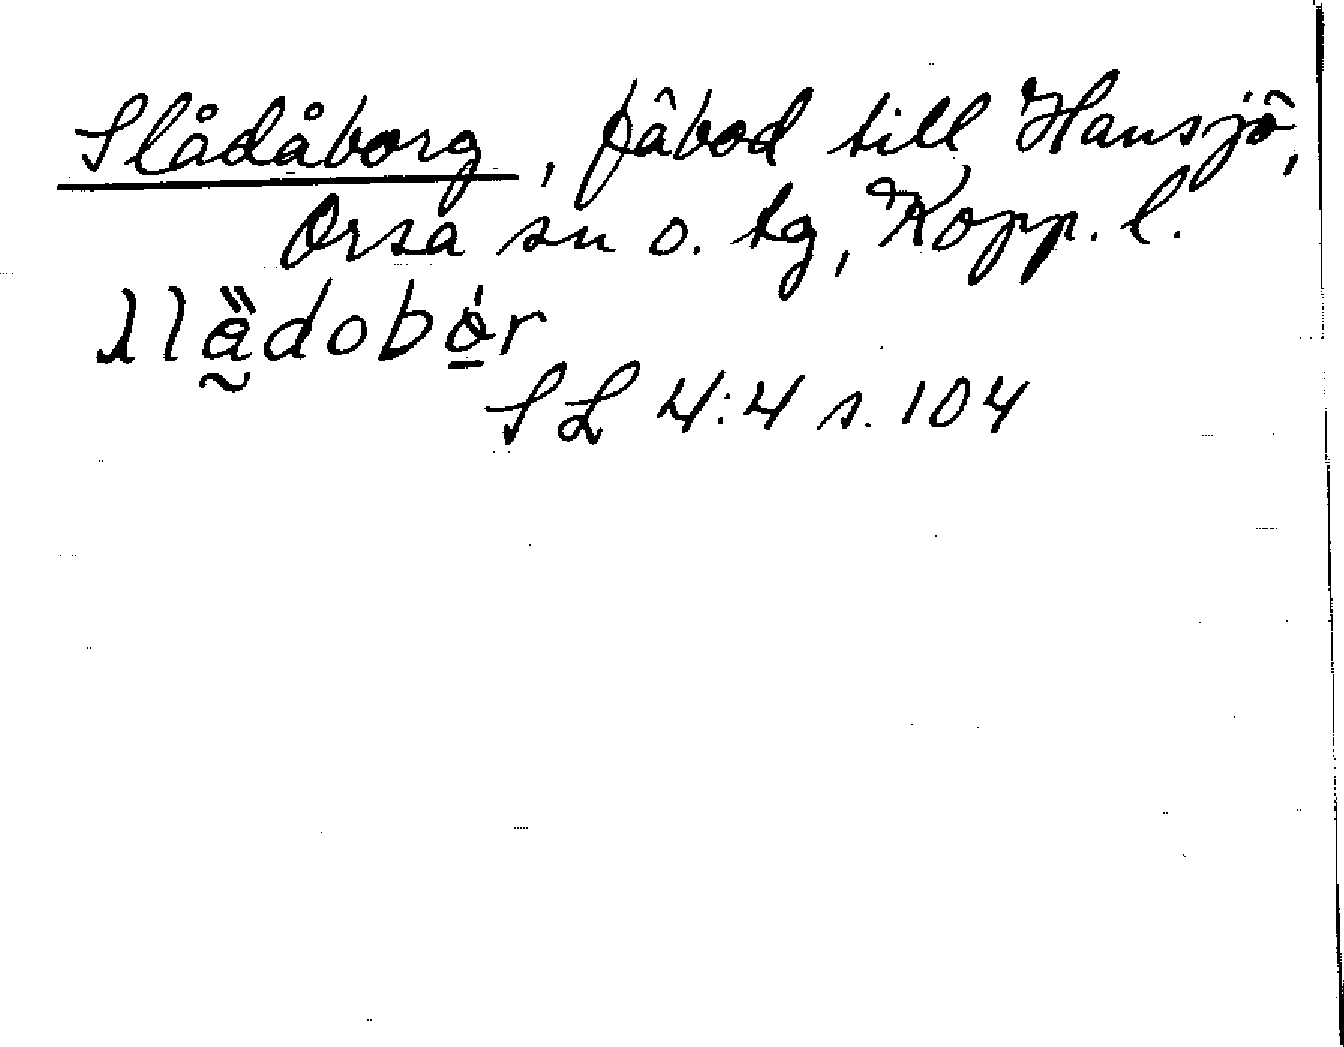 Slådåborg, fäbod till Hansjö,
Orsa sn o. tg, Kopp. l.
SL 4:4 s. 104